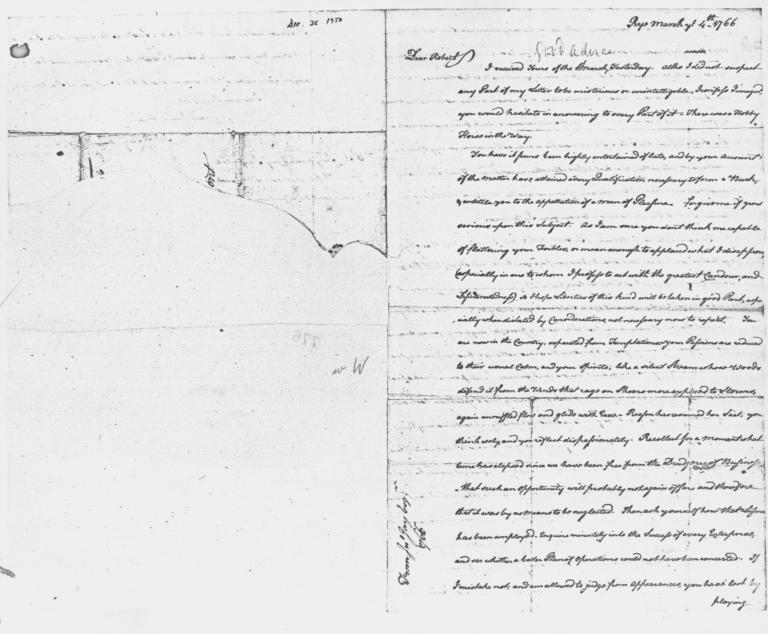 Dec. 26 1950
Rapo March ye 4th 1766
Good advice
Dear Robert
I received Yours of the March, Yesterday. Altho I did not suspect
any Part of my Letter to be misterious or unintelligible, I confess I imagined
you would hesitate in answering to every Part of it = There was a Hobby
Horse in the Way.
You have it seems been highly entertained of late, and by your Account
of the matter have attained every Qualification necessary to form a Buck,
& entitle you to the appellation of a man of Pleasure. Forgive me if I grow
serious upon this Subject. As I am sure you dont think me capable
of flattering your Foibles, or mean enough to applaud what I disapprove
(especially in one to whom I profess to act with the greatest Candour, and
Disinterestedness) so I hope Liberties of this kind will be taken in good Part, espe
cially when dictated by Considerations, not necessary now to repeat. You
are now in the Country, separated from Temptation your Passions are reduced
to their usual Calm, and your Spirits, like a silent Stream whose Woods
defend it from the Winds that rage on Shores more exposed to Storms,
again unruffled flow and glide with Ease - Reason has resumed her Seat, you
think cooly and you reflect dispassionately. Recollect for a moment what
time has elapsed since we have been free from the Drudgery of Business
- that such an opportunity will probably not again offer, and therefore
that it was by no means to be neglected. Then ask yourself how that Leisure
has been employed. Enquire minutely into the Success of every Enterprise,
and see whether a better Plan of Operations could not have been concerted. If
I mistake not, and am allowed to judge from Appearances, you have lost by
playing